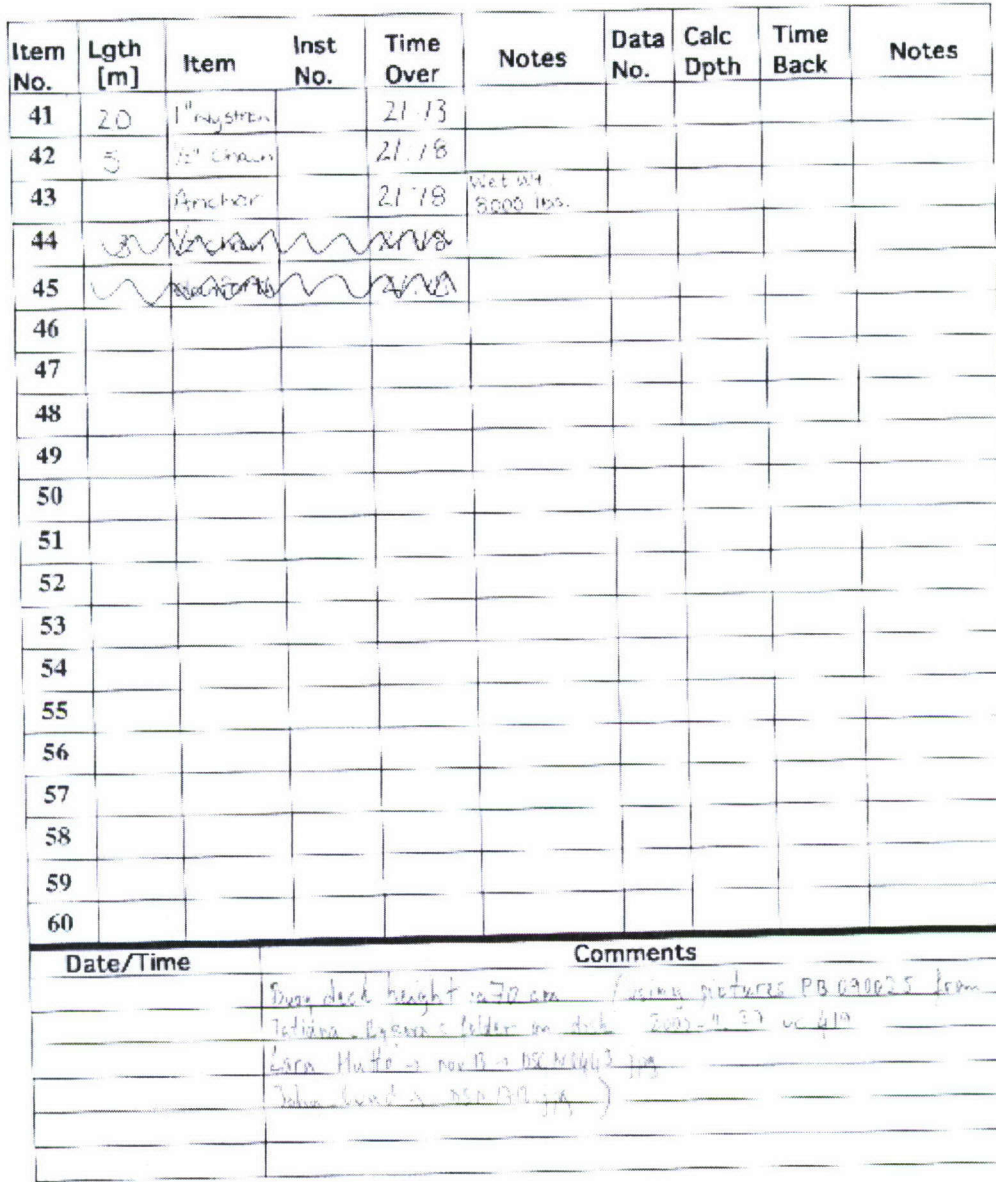 Item No. Lgth [m] Item Inst No. Time Over Notes Data No. Calc Dpth Time Back Notes
41 20 1" nystron 21:13
42 5 1/2" Chain 21:18
43 Anchor 21:18 Wet wt. 8000 lbs.
44 1/2 chain
45
46
47
48
49
50
51
52
53
54
55
56
57
58
59
60
Date/Time Comments
Buoy deck height 70 cm (using pictures PB090025 from
Tatiana folder on disk
Lara Hutto → nov 13 →
John